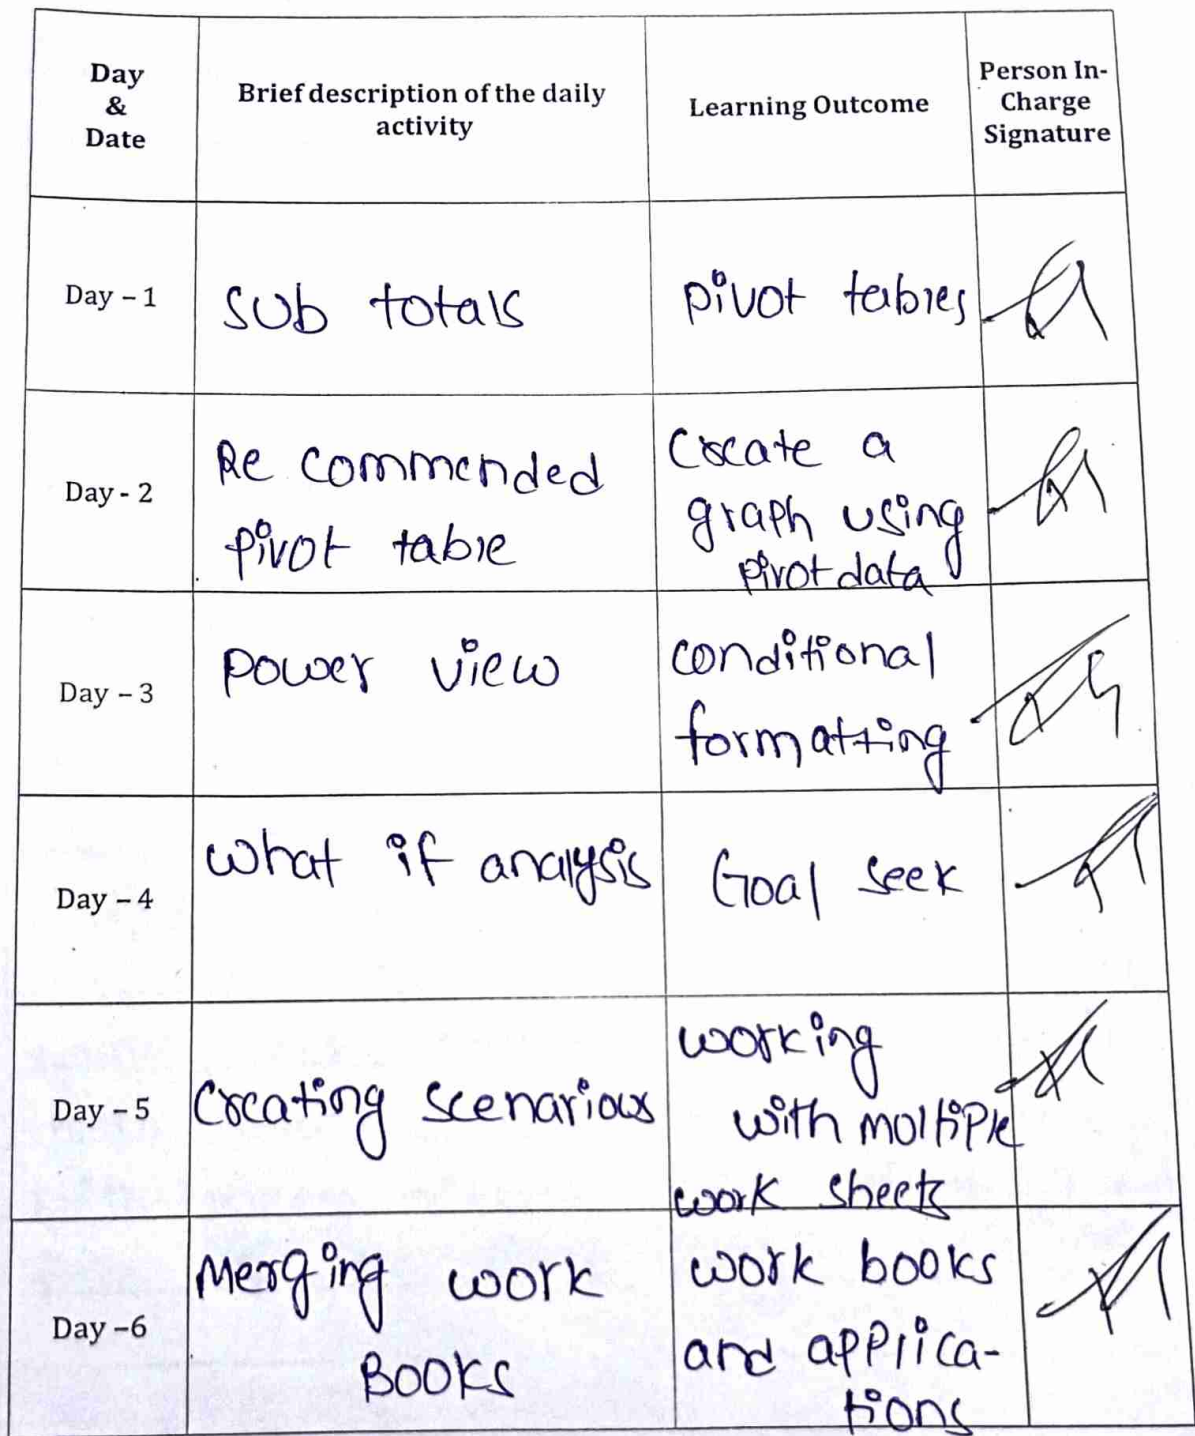 Day
&
Date
Brief description of the daily
activity
Learning Outcome
Person In-
Charge
Signature
Day – 1
Sub totals
pivot tables
Day - 2
Re commended
pivot table
Create a
graph using
pivot data
Day – 3
power view
conditional
formatting
Day – 4
what if analysis
Goal seek
Day – 5
Creating scenarious
working
with moltiple
work sheets
Day –6
Merging work
Books
work books
and applica-
tions